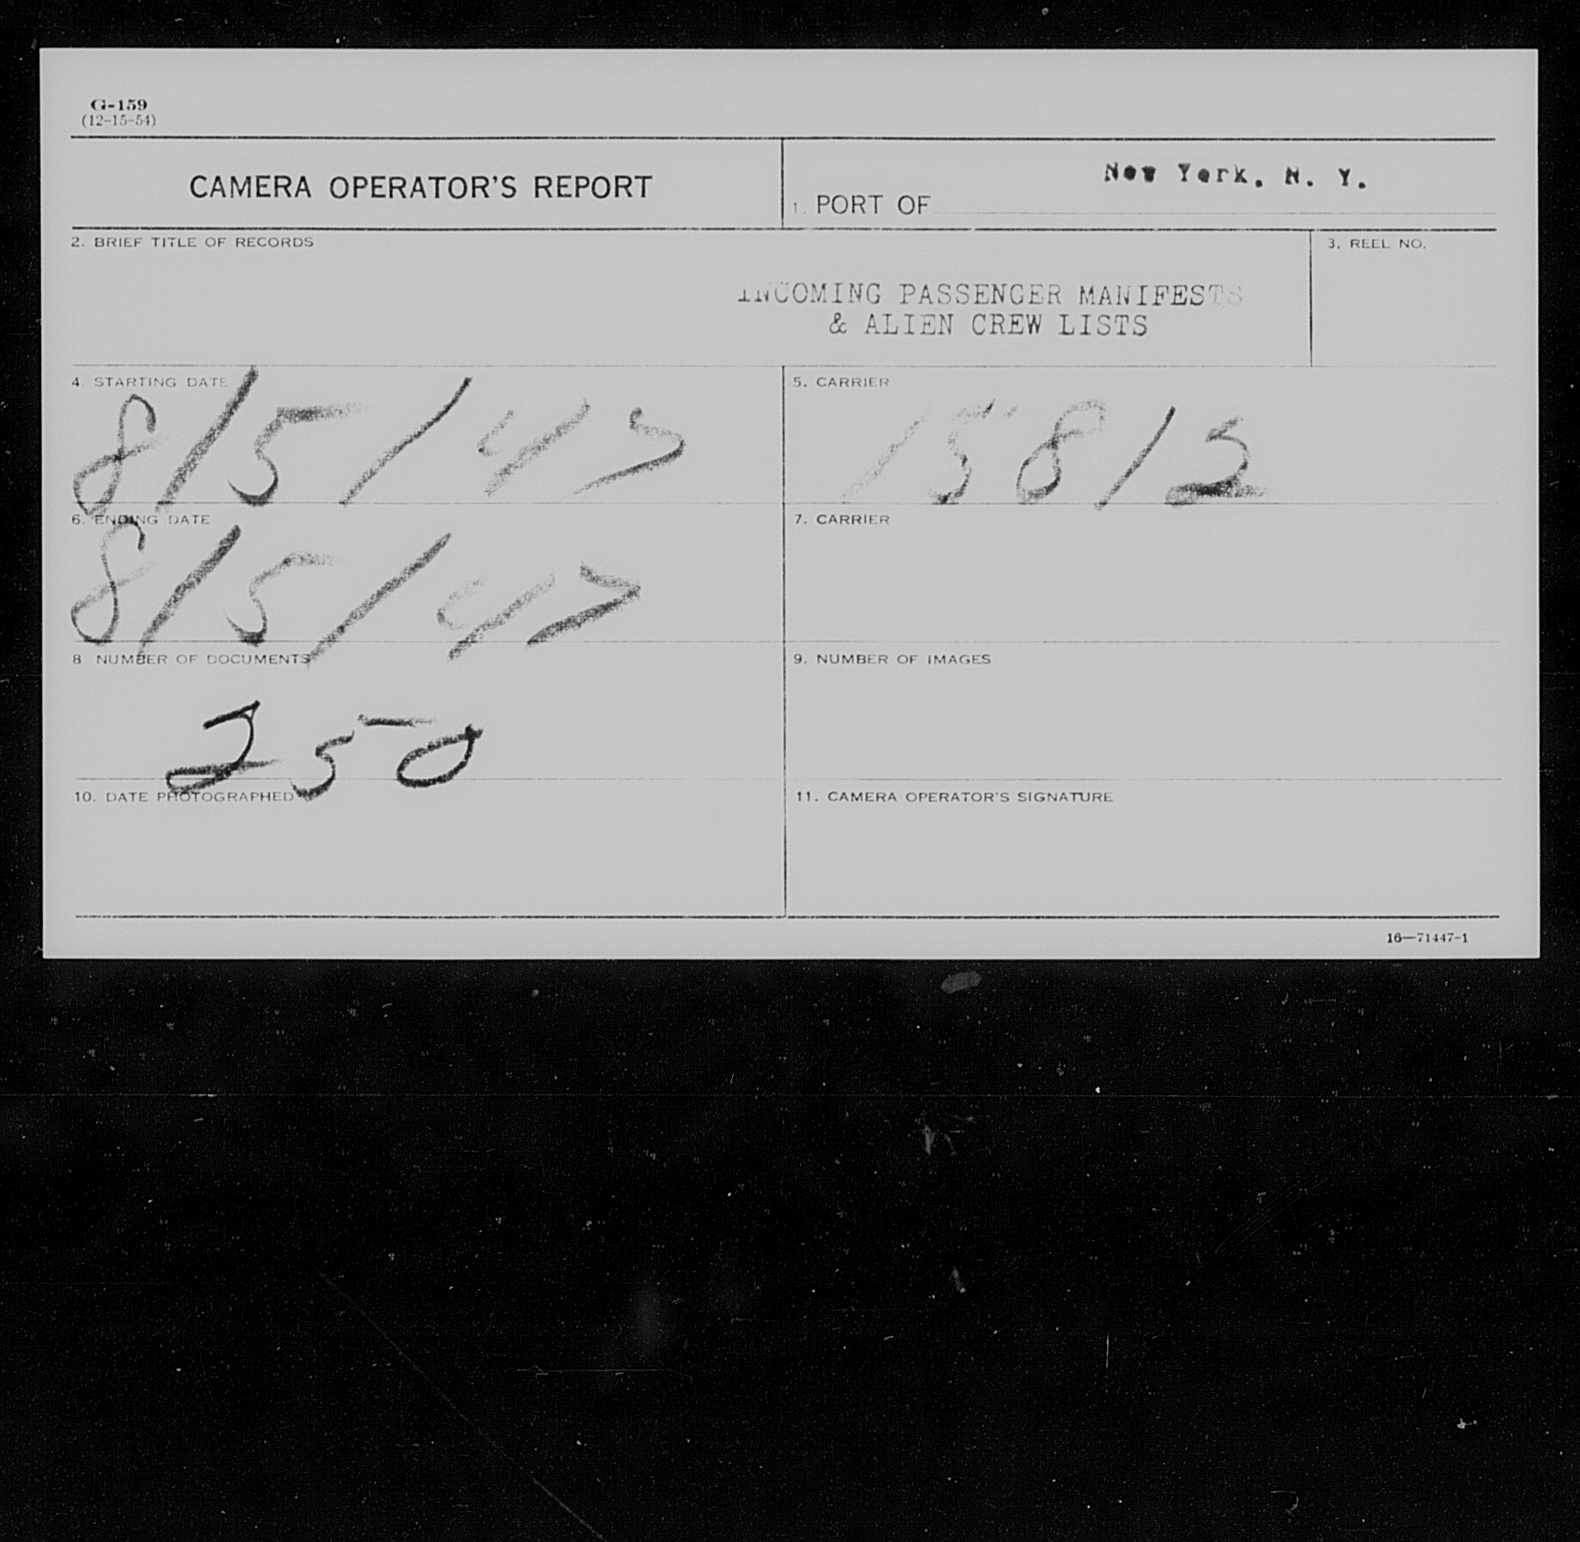 G-159
(12-15-54)
CAMERA OPERATOR'S REPORT
1. PORT OF New York, N. Y.
2. BRIEF TITLE OF RECORDS
3. REEL NO.
INCOMING PASSENGER MANIFESTS
& ALIEN CREW LISTS
4. STARTING DATE
8/5/47
5. CARRIER
15812
6. ENDING DATE
8/5/47
7. CARRIER
8 NUMBER OF DOCUMENTS
250
9. NUMBER OF IMAGES
10. DATE PHOTOGRAPHED
11. CAMERA OPERATOR'S SIGNATURE
16—71447-1